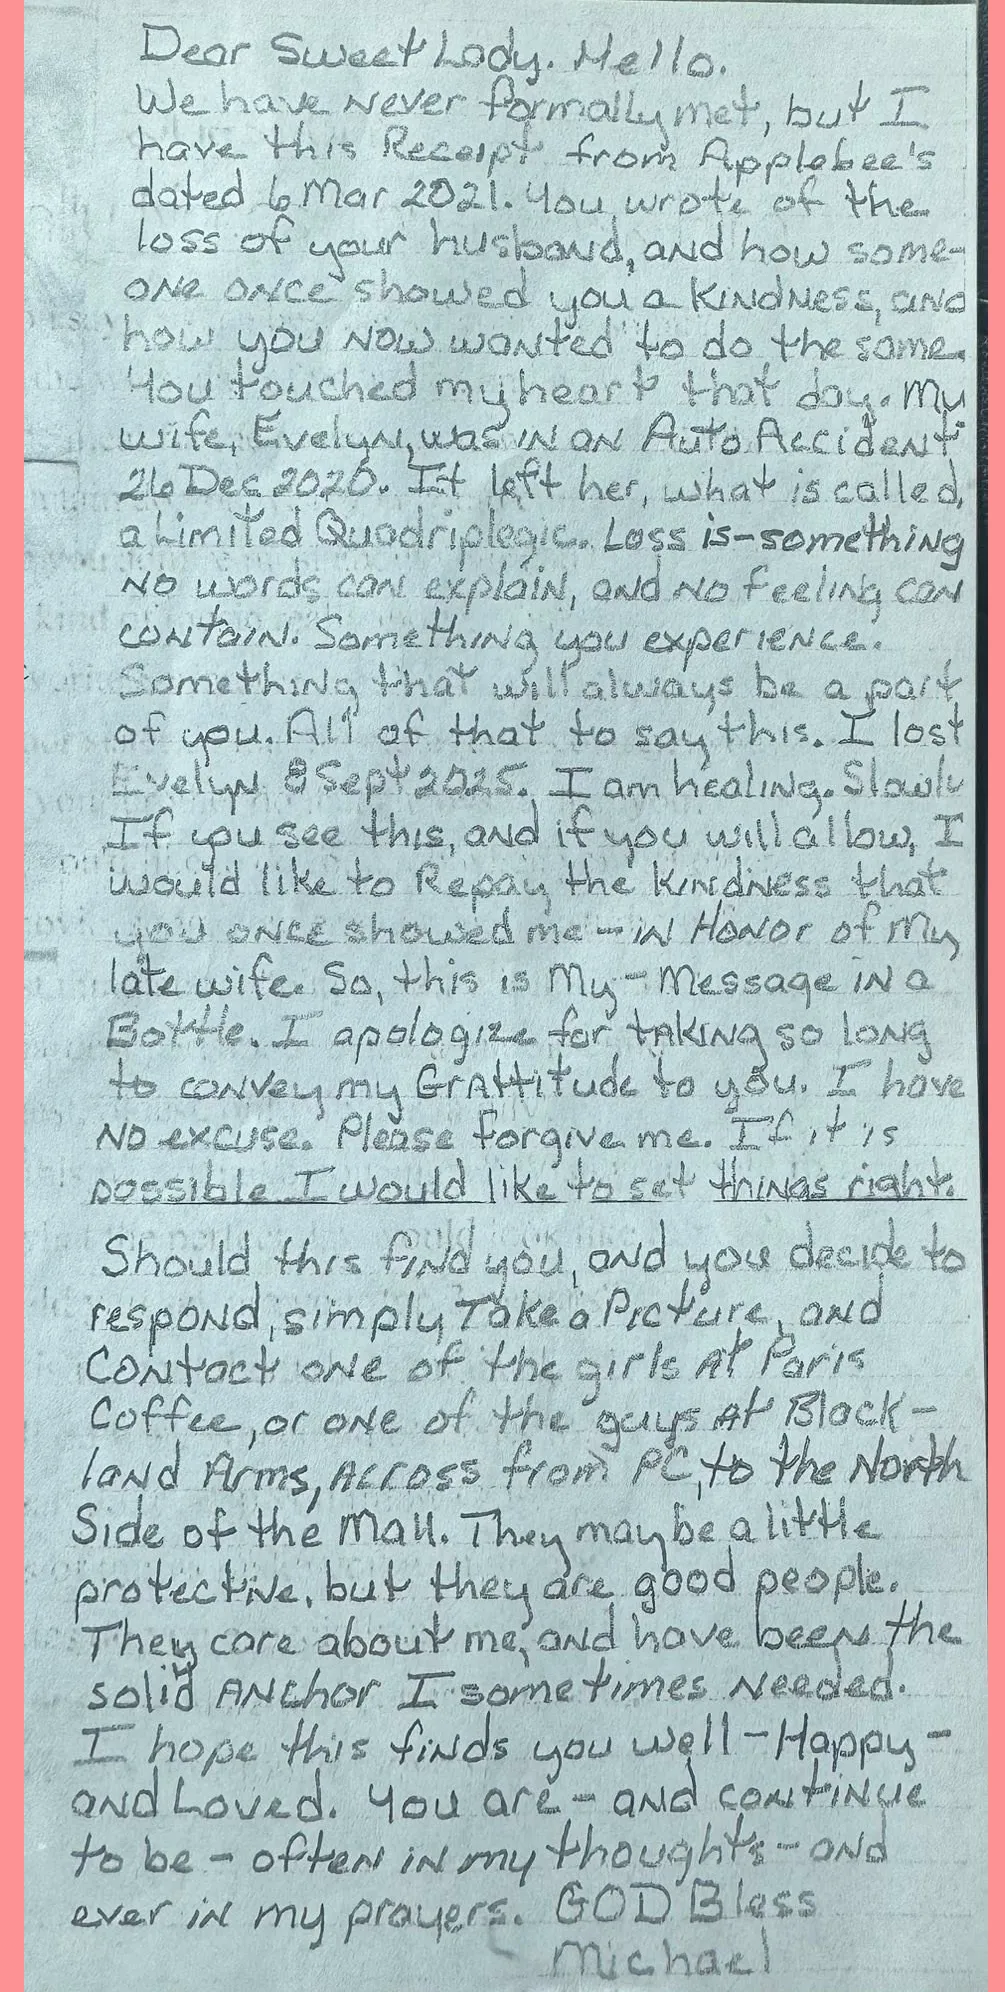 Dear Sweet Lady. Hello.
We have never formally met, but I
have this Receipt from Applebee's
dated 6 Mar 2021. You wrote of the
loss of your husband, and how some-
one once showed you a kindness, and
how you now wanted to do the same.
You touched my heart that day. My
wife, Evelyn, was in an Auto Accident
26 Dec 2020. It left her, what is called,
a Limited Quadriplegic. Loss is-something
no words can explain, and no feeling can
contain. Something you experience.
Something that will always be a part
of you. All of that to say this. I lost
Evelyn 8 Sept 2025. I am healing. Slowly
If you see this, and if you will allow, I
would like to Repay the kindness that
you once showed me - in Honor of my
late wife. So, this is My - Message in a
Bottle. I apologize for taking so long
to convey my Grattitude to you. I have
no excuse. Please forgive me. If it is
possible I would like to set things right.
Should this find you, and you decide to
respond, simply Take a Picture, and
Contact one of the girls at Paris
Coffee, or one of the guys at Black-
land Arms, across from PC, to the North
Side of the Mall. They may be a little
protective, but they are good people.
They care about me, and have been the
solid anchor I sometimes needed.
I hope this finds you well - Happy -
and Loved. You are - and continue
to be - often in my thoughts - and
ever in my prayers. GOD Bless
Michael